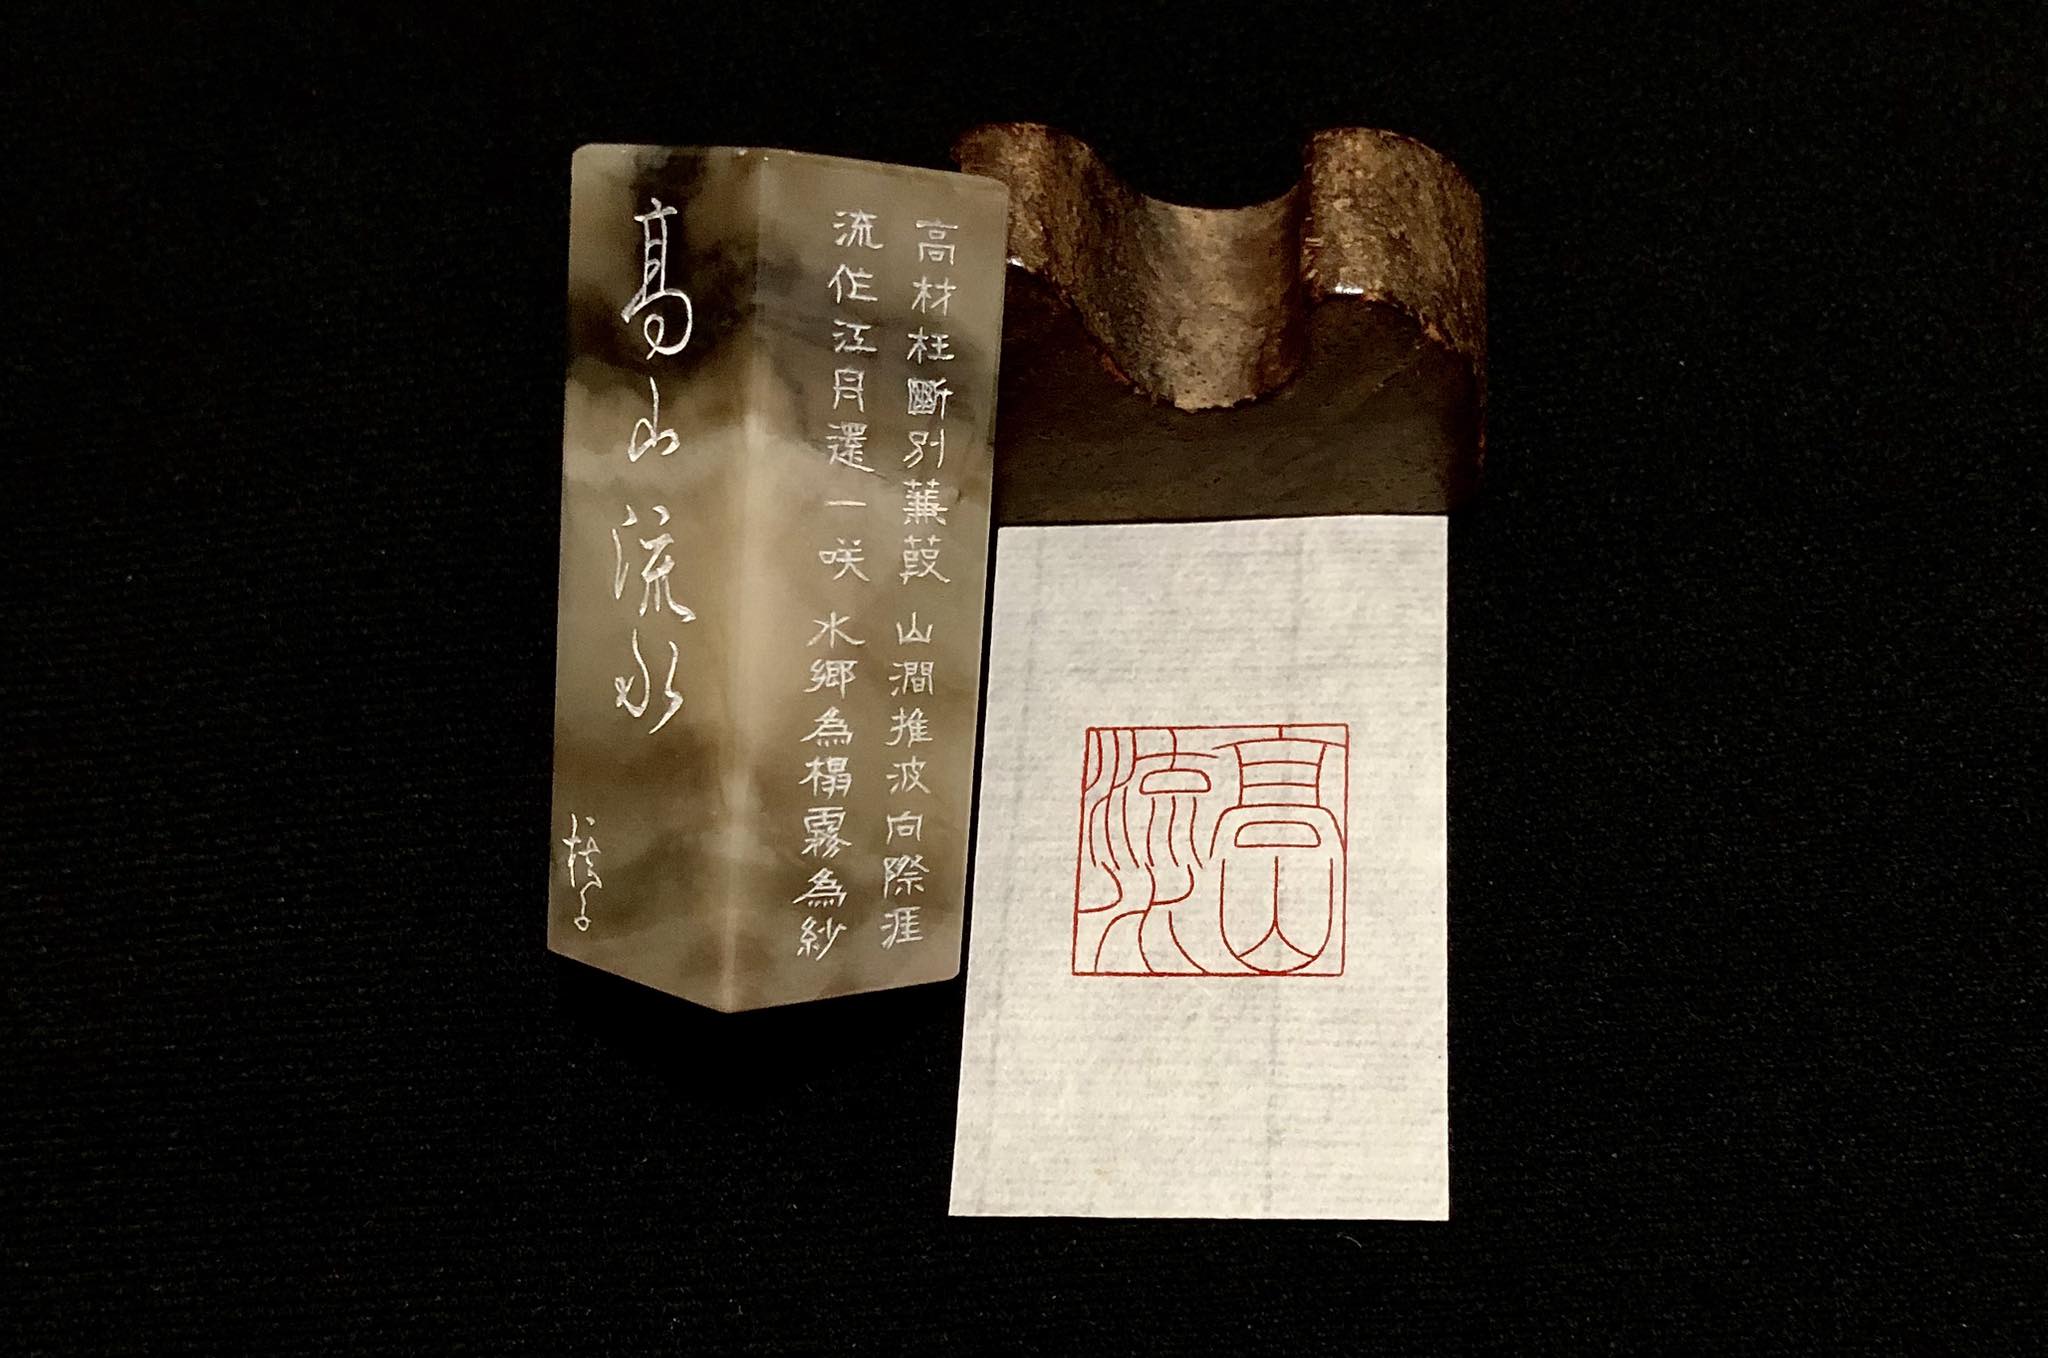 高材枉斷別蒹葭 山澗推波向際涯
流作江月還一咲 水鄉為榻霧為紗
高山流水
高山
流水